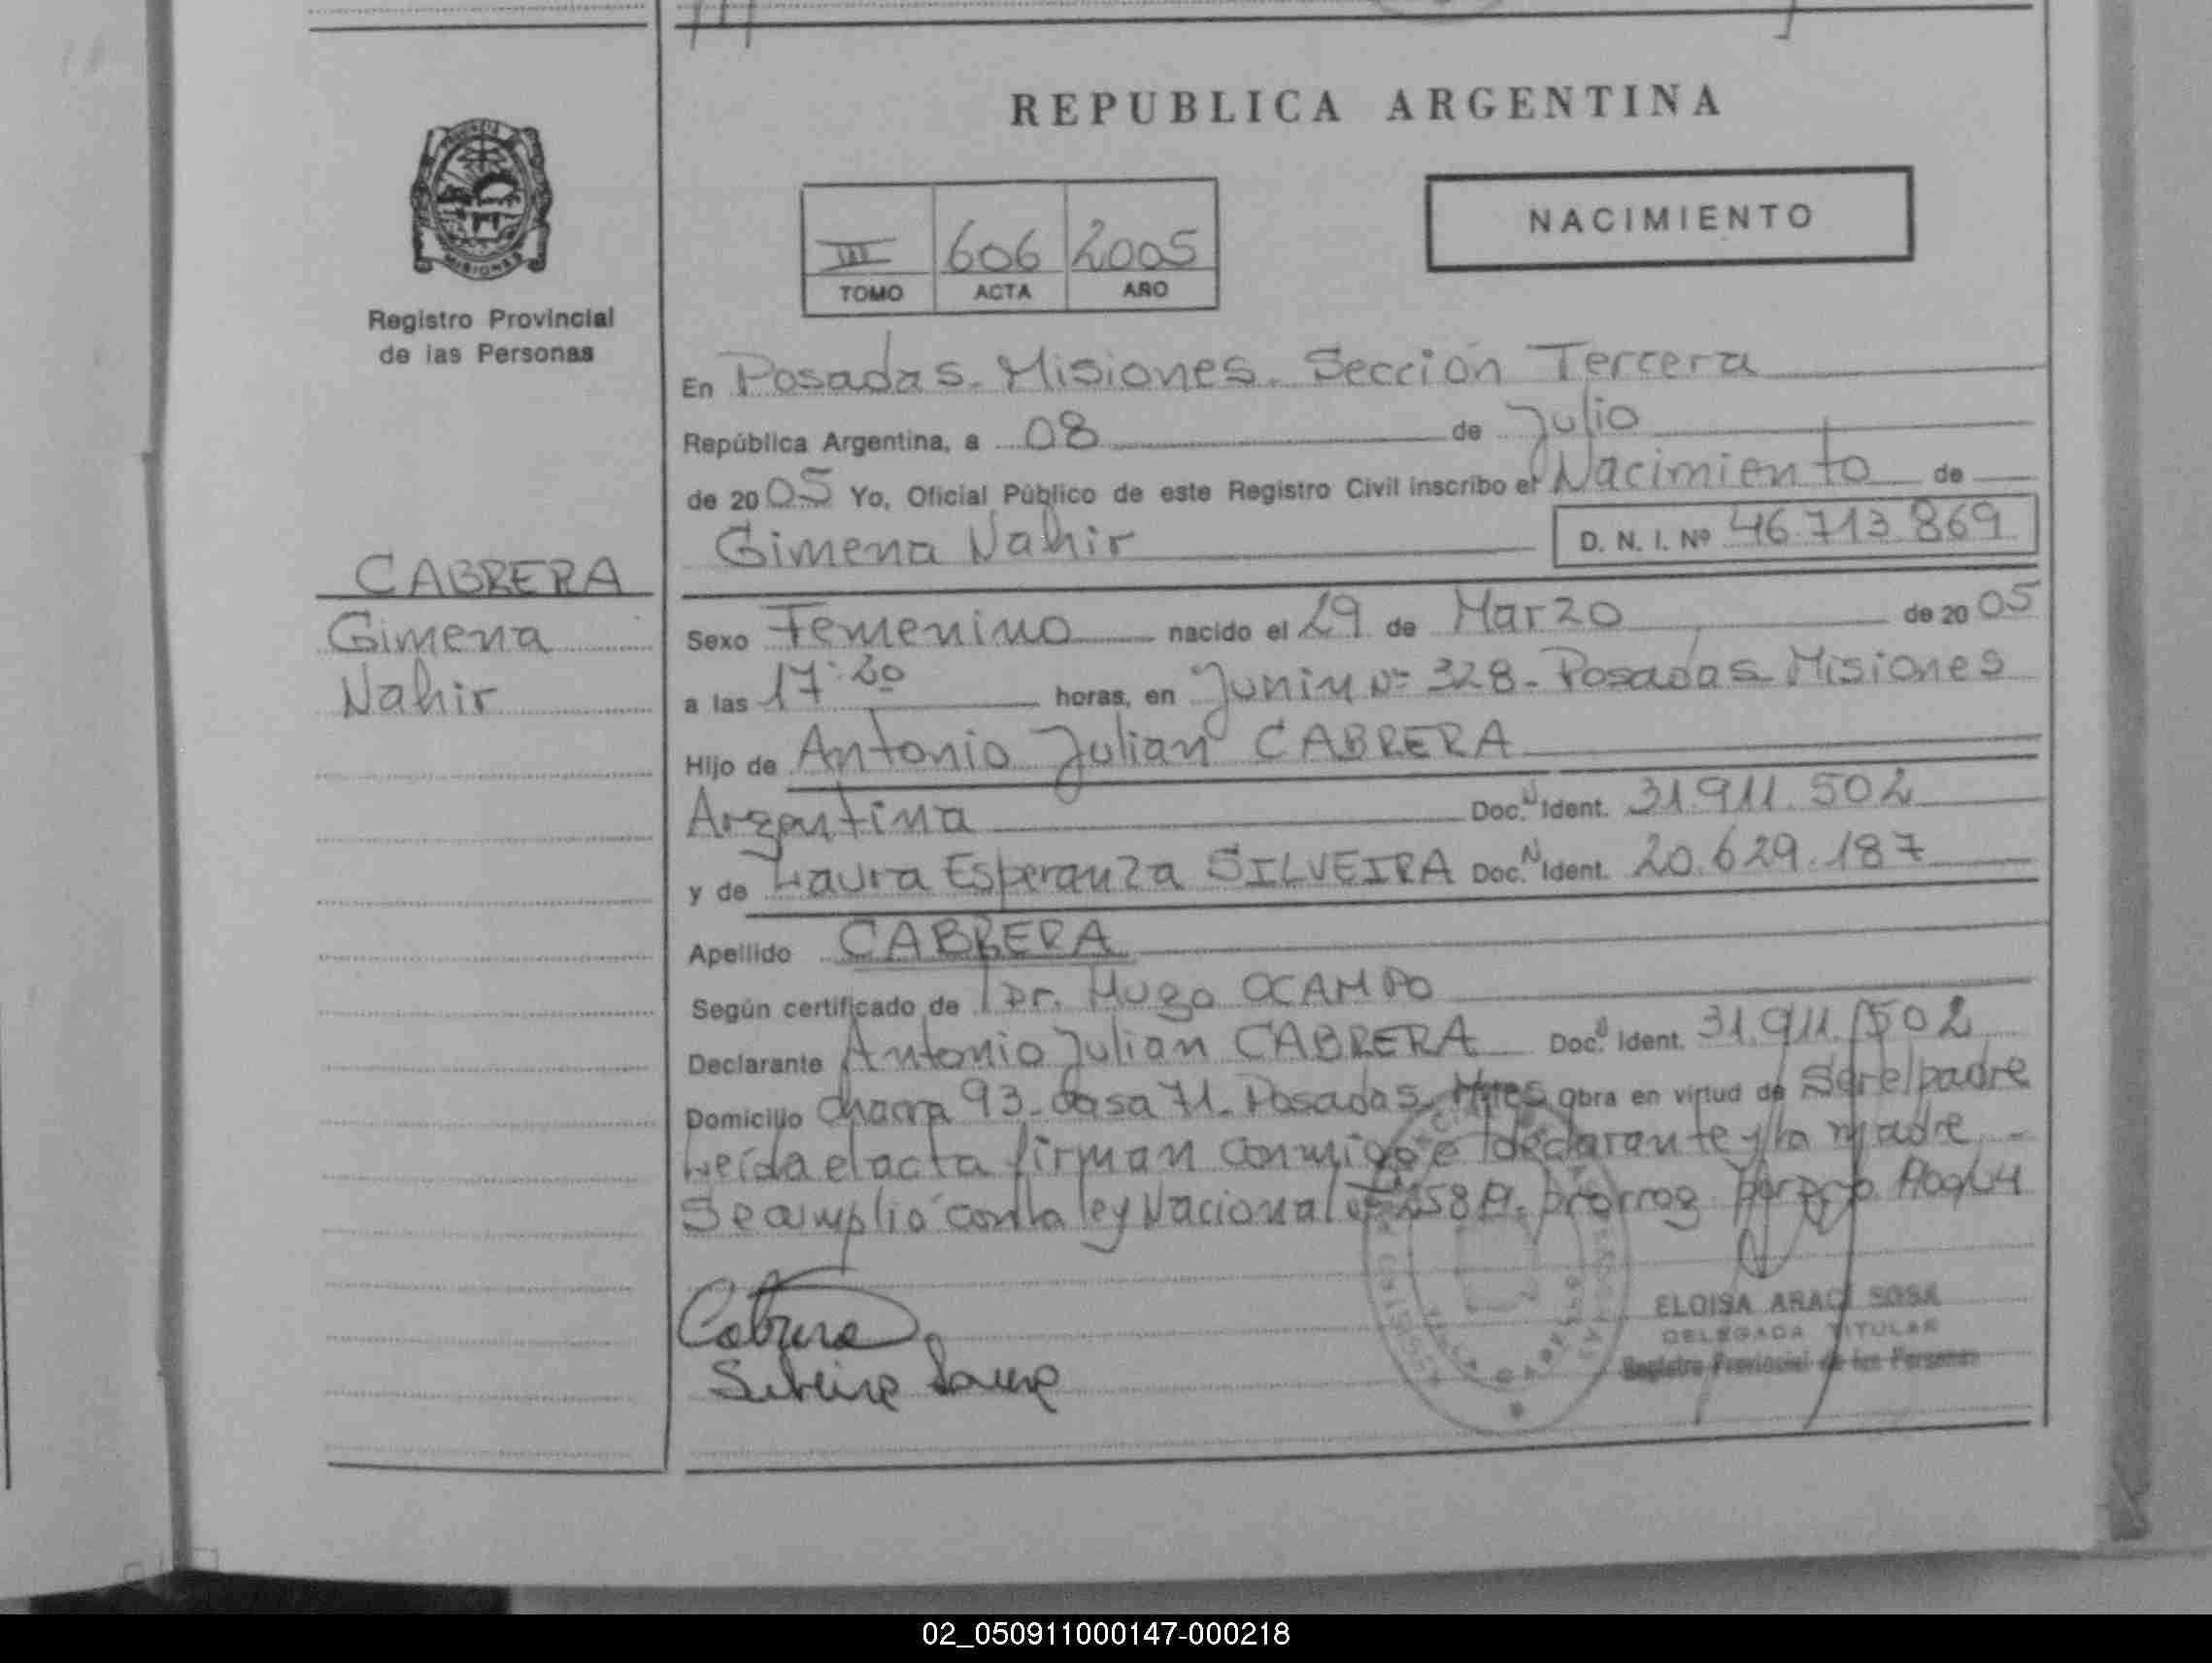 REPUBLICA ARGENTINA
PROVINCIA
MISIONES
Registro Provincial
de las Personas
III 606 2005
TOMO ACTA AÑO
NACIMIENTO
En Posadas. Misiones. Sección Tercera
República Argentina, a 08 de Julio
de 2005 Yo, Oficial Público de este Registro Civil inscribo el Nacimiento de
Gimena Nahir D. N. I. Nº 46.713.869
CABRERA
Gimena
Nahir
Sexo Femenino nacido el 29 de Marzo de 2005
a las 17:20 horas, en Junin Nº 328. Posadas. Misiones
Hijo de Antonio Julian CABRERA
Argentina Doc. N Ident. 31.911.502
y de Laura Esperanza SILVEIRA Doc. N Ident. 20.629.187
Apellido CABRERA
Según certificado de Dr. Hugo OCAMPO
Declarante Antonio Julian CABRERA Doc. Ident. 31.911.502
Domicilio chacra 93. casa 71. Posadas. Mnes Obra en virtud de Ser el padre
Leída el acta firman conmigo el declarante y la madre
Se cumplió con la ley Nacional prorrog por
Cabrera
Silveira Laura
ELOISA ARACI SOSA
DELEGADA TITULAR
Registro Provincial de las Personas
02_050911000147-000218